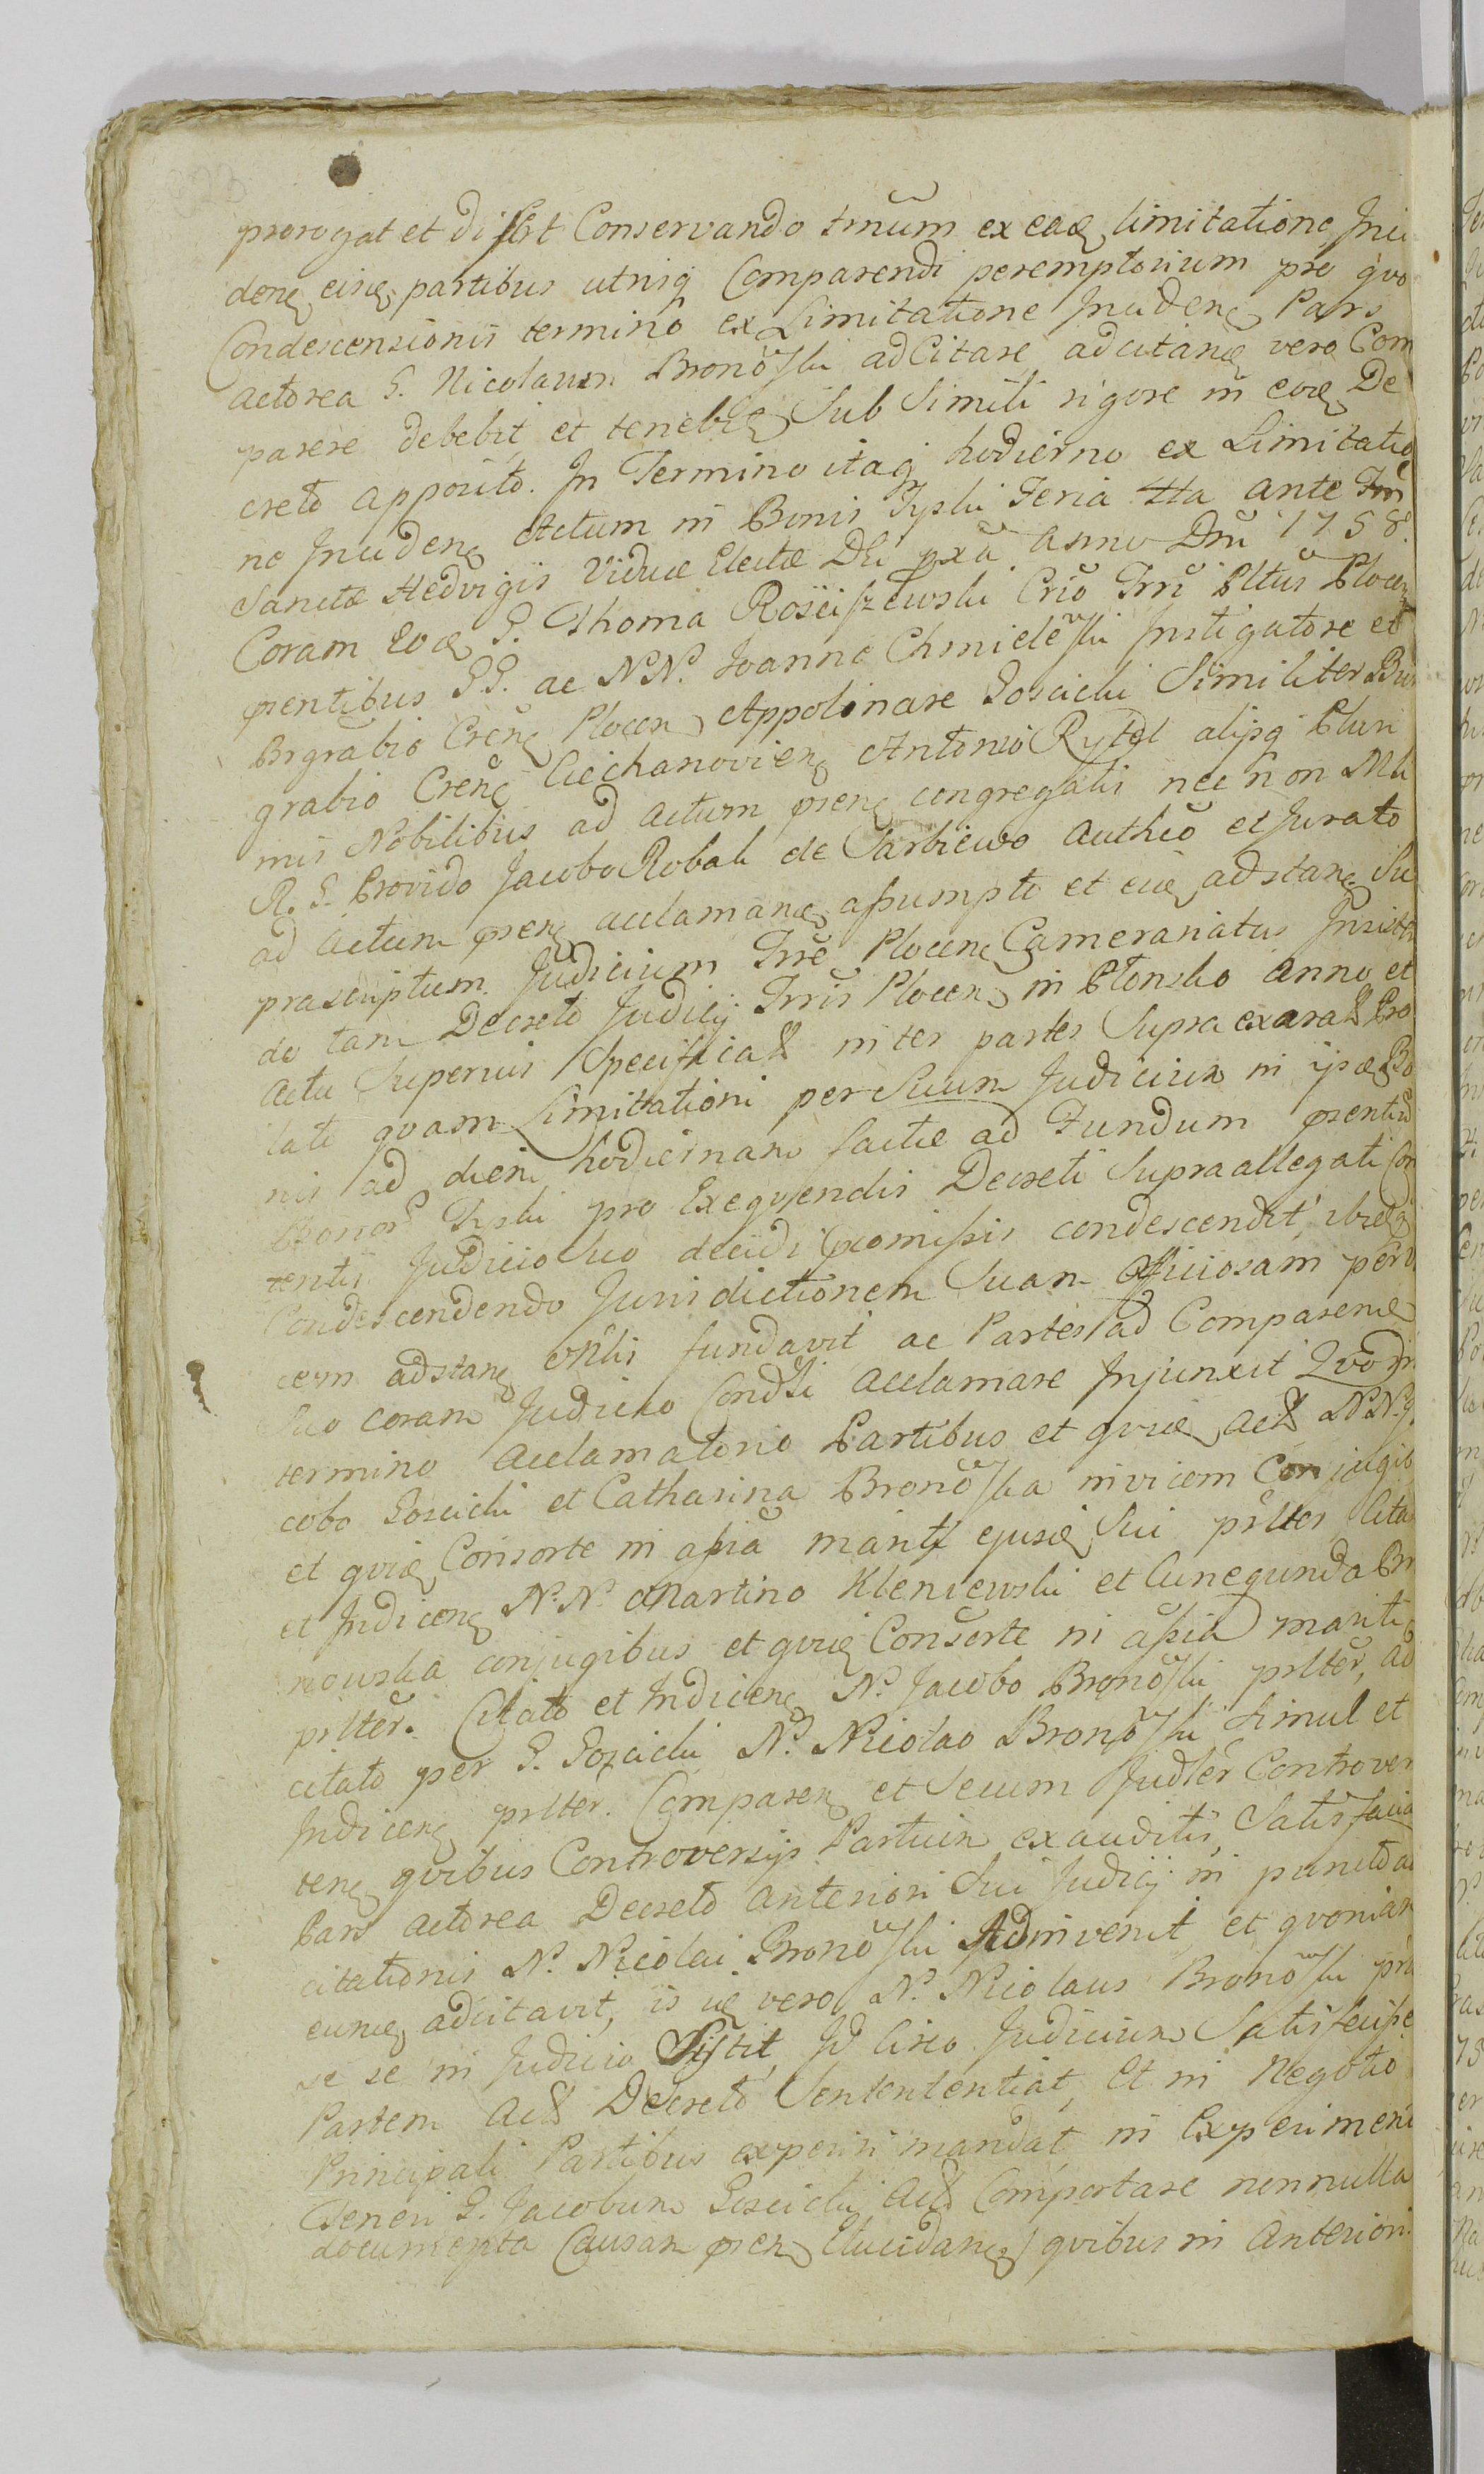 prorogat et differt Conservando trnum ex ead limitatione Inci
den eisd partibus utrisq Comparendi peremptorium pro quo
Condescensionis termino ex Limitatione Inciden Pars
actorea G. Nicolaum Bronowski adCitare adcitand vero Com
parere debebit et tenebit Sub Simili rigore in eod De
creto apposito. In Termino itaq hodierno ex Limitatio
ne Inciden Actum in Bonis Tyski Feria 4ta ante Fm
Sanctæ Hedvigis Viduæ Electæ DEi pxa Anno Dni 1758.
Coram Eod G. Thoma Rosciszewski Crio Trri Pltus Plocen
psentibus GG. ac NN. Joanne Chmielewski Instigatore et
Brgrabio Cren Plocen Appolinare Goscicki Similiter Bur
grabio Cren Ciechanovien Antonio Rytel alijsq Pluri
mis Nobilibus ad actum psen congregatis nec non Mli
R. G. Provido Jacobo Robak de Sarbiewo authco et Jurato
ad actum psen acclamand assumpto et eid adstan Su
prascriptum Judicium Trre Plocen Cameranatus Insisten
do tam Decreto Judicij Trris Plocen in Plonsko anno et
actu Superius Specificat inter partes Supra exarat Pro
lati quam Limitationi per Suum Judicium in ijsd Bo
nis ad diem hodiernam factæ ad Fundum psentiu
Bonor Tyski pro Exequendis Decreti Supraallegati Con
tentis Judicio Suo decidi promissis condescendit, ibidq
Condescendendo Jurisdictionem Suam Officiosam per
cern adstan Mlis fundavit ac Partes ad Comparend
Suo coram Judicio Condsli acclamare Injunxit Quo in
termino acclamatorio Partibus et quid Act NN. Ja
cobo Goscicki et Catharina Bronowska invicem Conjugib
et quid Consorte in assia mariti ejusd Sui prlter Cita
et Indicen NN. Martino Kleniewski et Cunegunda Br
nowska conjugibus et quid Consorte in assia mariti
prlter. Citato et Indicen N. Jacobo Bronowski prlter, ad
citato per G. Goscicki N. Nicolao Bronowski Simul et
Indicen prlter. Comparen et Secum Judler Controver
ten quibus Controversijs Partium exauditis, Satisfacia
Pars actorea Decreto anteriori Sui Judicij in puncto ad
citationis N. Nicolai Bronowski Adinvenit, et quoniam
eund adcitavit, is id vero N. Nicolaus Bronowski pr
se se in Judicio Sistit, Id circo Judicium Satisfecisse
Partem Act Decreto Sentententiat, Et in Negotio
Principali Partibus experiri mandat, in Experimen
Teneri G. Jacobum Goscicki Act Comportare nonnulla
documenta Causam psen Elucidan quibus in Anteriori